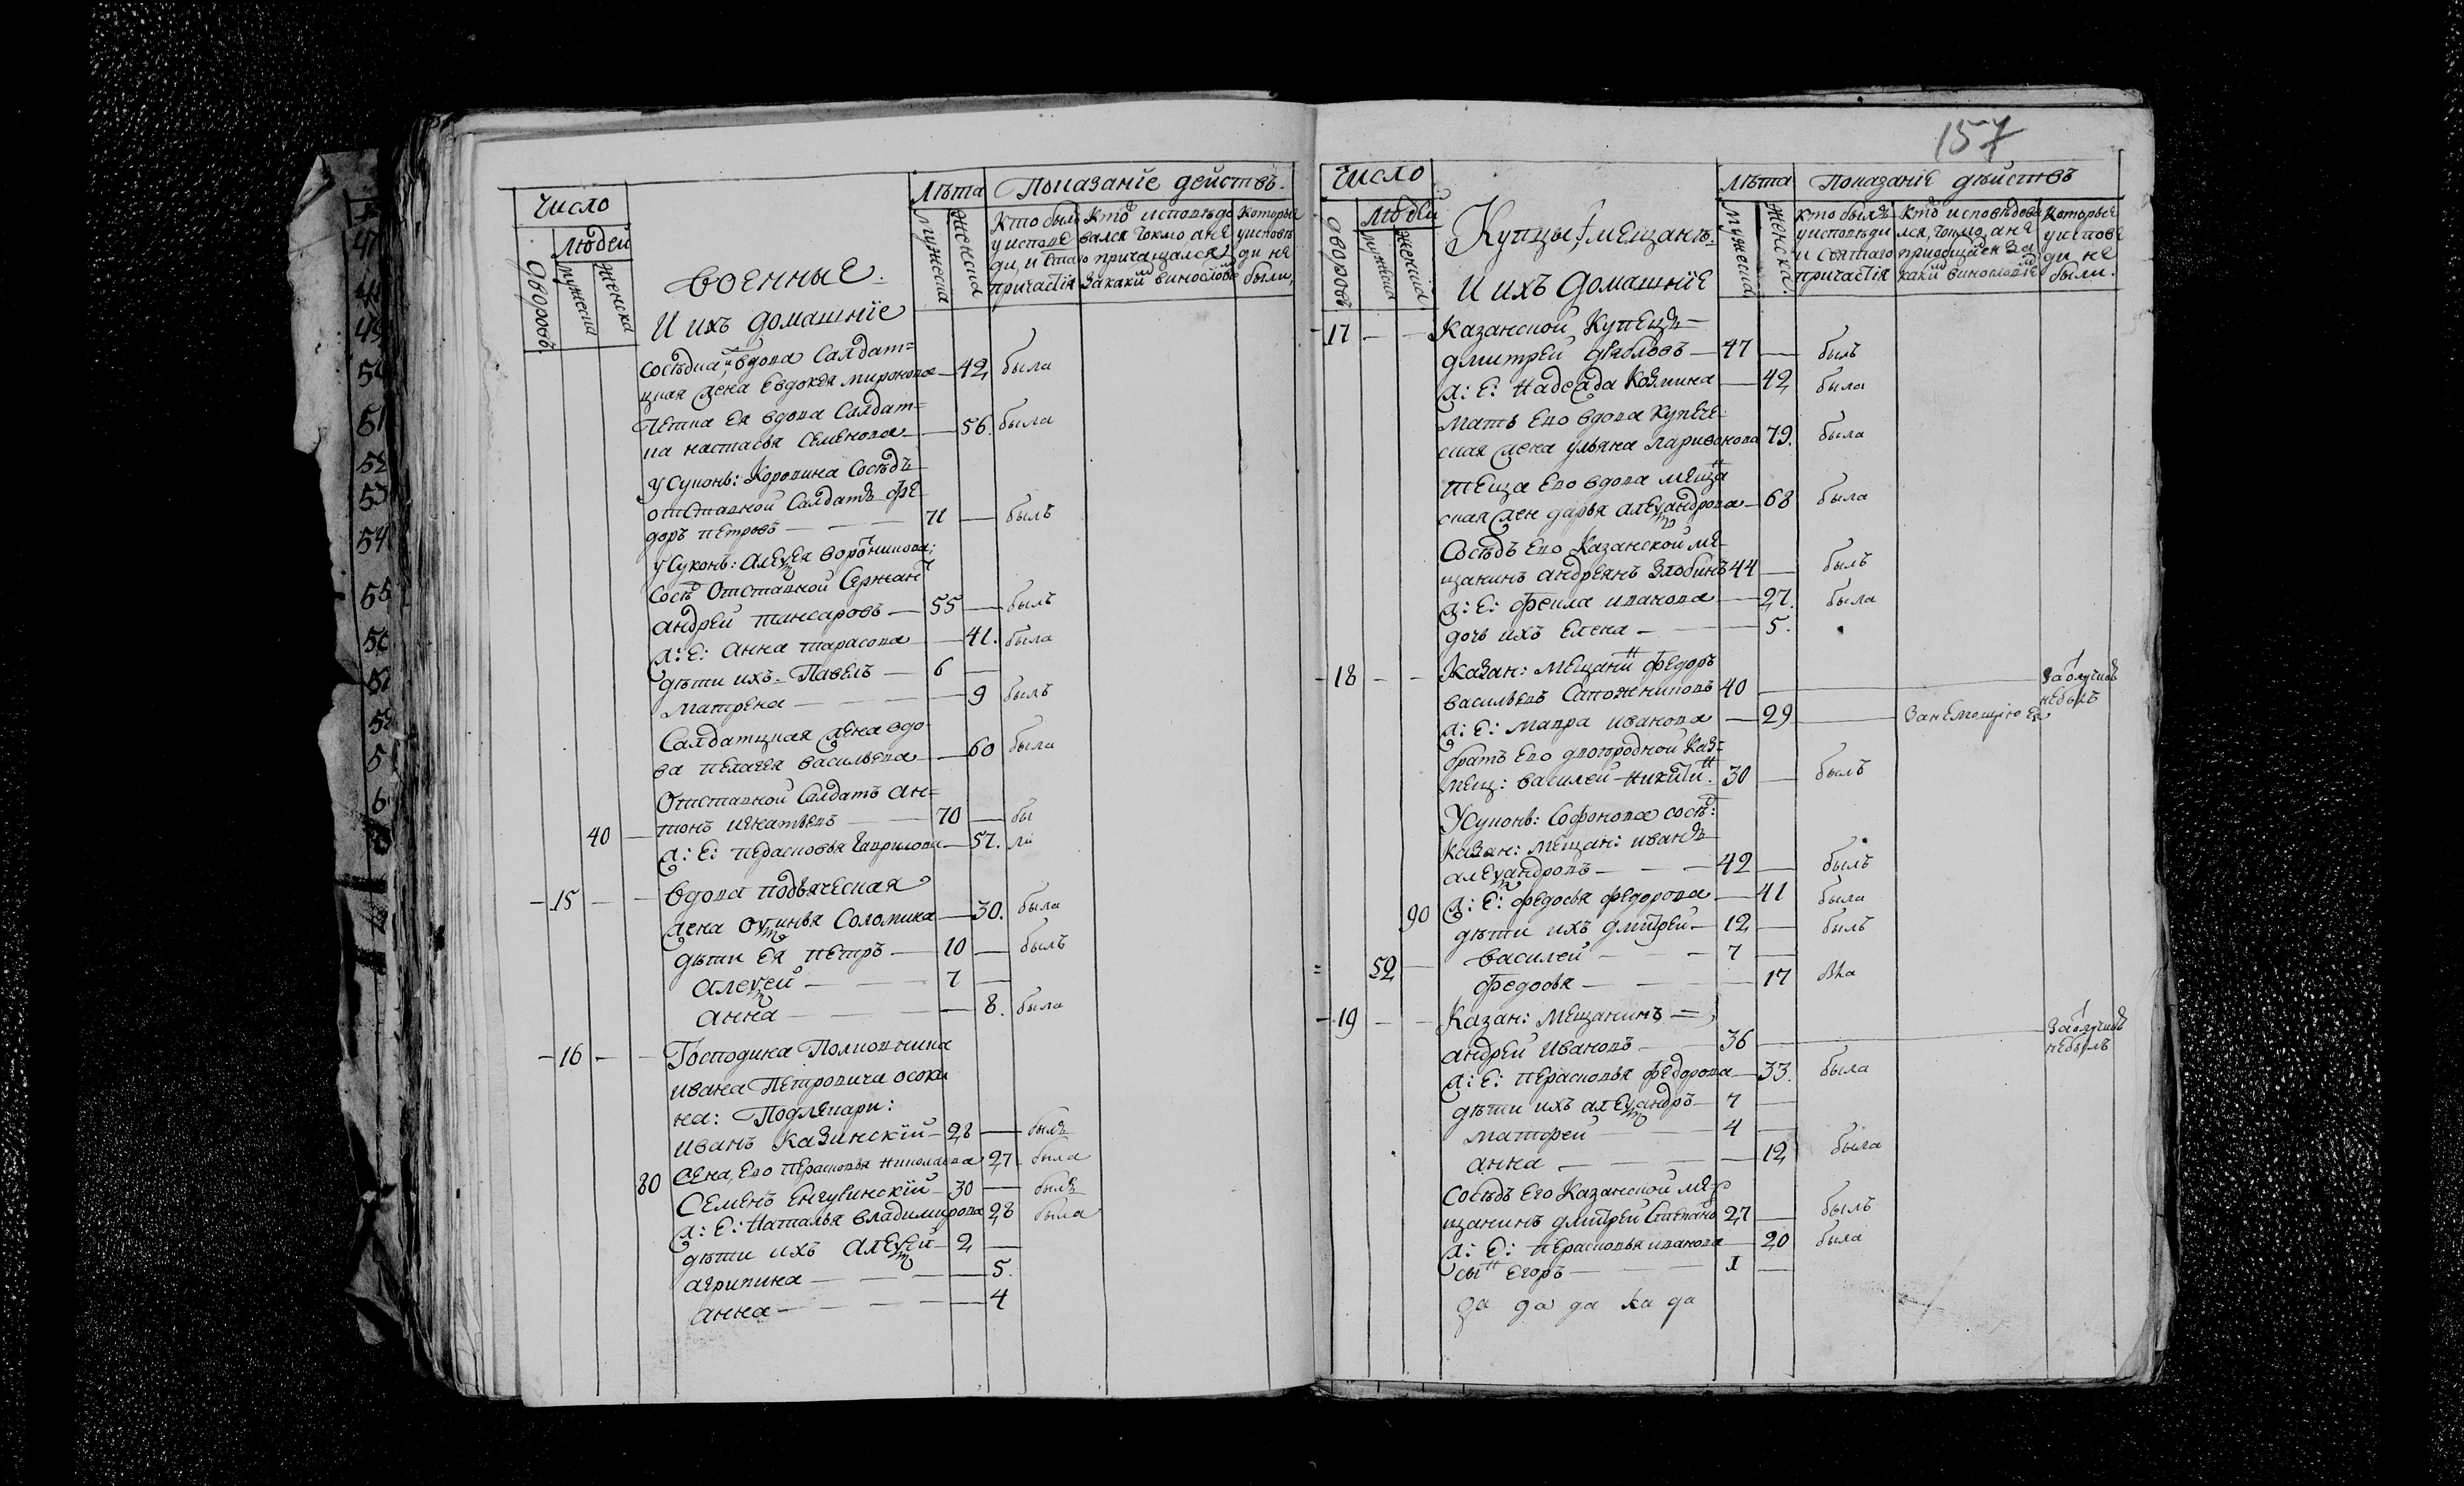 Число
Людей
Дворовъ.
мужеска
Женска
военные.
И ихъ домашнїе
Лѣта
мужеска
Женска
Показанїе действъ.
Кто былъ
у испове
ди, и Стаго
причастїя
Кто исповѣдо
вался токмо, а не
причащался и
за какимъ винословїемъ
Которые
у исповѣ
ди не
были,
сосѣдка, вдова Салдат=
цкая жена Евдокея миронова — 42 была
Тетка ея вдова Салдат=
ка настасья Семенова — 56. была
У Суконъ: Коровина Сосѣдъ
отставной Салдатъ фе
доръ петровъ — 71 — былъ
у Суконъ: Алеѯея воронинова;
Сосѣ Отставной Сержант
андрей тансаровъ — 55 — былъ
ж: Е: анна тарасова — 41. была
дѣти ихъ. Павелъ — 6 —
матрена — 9 былъ
Салдатцкая жена вдо
ва пелагея васильева — 60 была
Отставной Салдатъ ан=
тонъ игнатьевъ — 70 — бы
40 — ж: Е: перасковья гаврилова — 57. ли
15 — вдова подьяческая
жена Оѯинья Соломина — 30. была
дѣти Ея петръ — 10 — былъ
алеѯей — 7 —
анна — 8. была
16 — Господина Полковника
ивана Петровича осоки
на: Подлекари:
иванъ Казинскїй — 28 — былъ
80 жена Его перасковья николаева 27 была
Семенъ Енгувинскїй — 30 — былъ
ж: Е: Наталья владимирова 28 была
дѣти ихъ Алеѯей — 2 —
агрипина — 5.
анна — 4
157
Число
Людей
Дворовъ
мужеска
женска
Купцы, мещанѣ.
И ихъ домашнїе
Лѣта
мужеска
Женска.
Показанїе дѣйствъ
кто былъ
у исповѣди
и святаго
причастїя
Кто исповѣдова
лся, токмо, а не
приобщенъ за
какимъ винословїемъ
Которые
у испове
ди не
были.
17 — Казанской Купецъ
дмитрей дрябловъ — 47 — былъ
ж: Е: Надежда Козмина — 42 была
мать Ево вдова Купече
ская жена ульяна ларивонова 79. была
теща Ево вдова меща
ская жен дарья алеѯандрова — 68 была
Сосѣдъ Ево Казанской ме
щанинъ андреянъ Злобинъ 44 — былъ
ж: Е: феκла иванова — 27. была
дочь ихъ Елена — 5.
18 — Казан: мещанин федоръ
васильевъ Сапожниковъ 40 — За отлучкою небылъ
ж: Е: мавра иванова — 29 — За немощїю Ея
братъ Ево двоюродной Каз=
мещ: василей Никитин. 30 — былъ
У Суконъ: Софонова сосѣ:
Казан: мещан: иванъ
алеѯандровъ — 42 — былъ
90 ж: Е: федосья федорова — 41 была
дѣти ихъ дмитрей — 12 — былъ
52 — василей — 7 —
федосья — 17 была
19 — Казан: мещанинъ =
андрей Ивановъ — 36 — За отлучкою небылъ
ж: Е: перасковья федорова — 33. была
дѣти ихъ алеѯандръ — 7 —
матфей — 4 —
анна — 12 была
Сосѣдъ Его Казанской ме
щанинъ дмитрей Степано 27 — былъ
ж: Е: перасковья иванова — 20 была
сын Егоръ — 1 —
да да да ка да